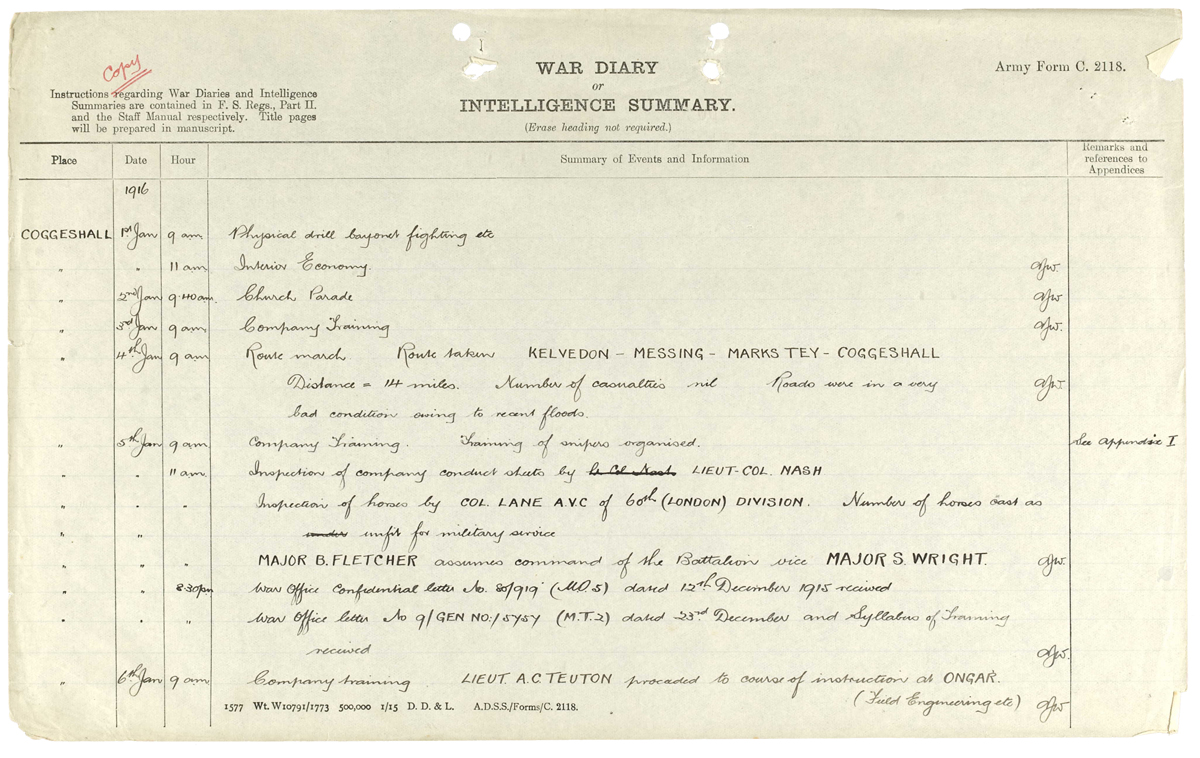 Copy
Instructions regarding War Diaries and Intelligence
Summaries are contained in F. S. Regs., Part II.
and the Staff Manual respectively. Title pages
will be prepared in manuscript.
WAR DIARY
or
INTELLIGENCE SUMMARY.
(Erase heading not required.)
Army Form C. 2118.
Place Date Hour Summary of Events and Information Remarks and references to Appendices
1916
COGGESHALL 1st Jan 9 am Physical drill bayonet fighting etc
" " 11 am Interior Economy.
" 2nd Jan 9.40am. Church Parade
" 3rd Jan 9 am Company Training
" 4th Jan 9 am Route march. Route taken KELVEDON - MESSING - MARKS TEY - COGGESHALL
Distance = 14 miles. Number of casualties nil Roads were in a very
bad condition owing to recent floods.
" 5th Jan 9 am Company Training. Training of snipers organised. See Appendix I
" " 11 am. Inspection of company conduct sheets by Lt Col Nash LIEUT-COL. NASH
" " " Inspection of horses by COL. LANE A.V.C of 60th (LONDON) DIVISION. Number of horses cast as
" " under unfit for military service
" " " MAJOR B. FLETCHER assumes command of the Battalion vice MAJOR S. WRIGHT.
" " 8.30pm War Office Confidential letter No. 80/919 (M.O.5) dated 12th December 1915 received
" " " War Office letter No 9/GEN NO:/5757 (M.T.2) dated 23rd December and Syllabus of Training
received
" 6th Jan 9 am Company training LIEUT. A.C TEUTON proceded to course of instruction at ONGAR.
(Field Engineering etc)
1577 Wt. W10791/1773 500,000 1/15 D. D. & L. A.D.S.S./Forms/C. 2118.